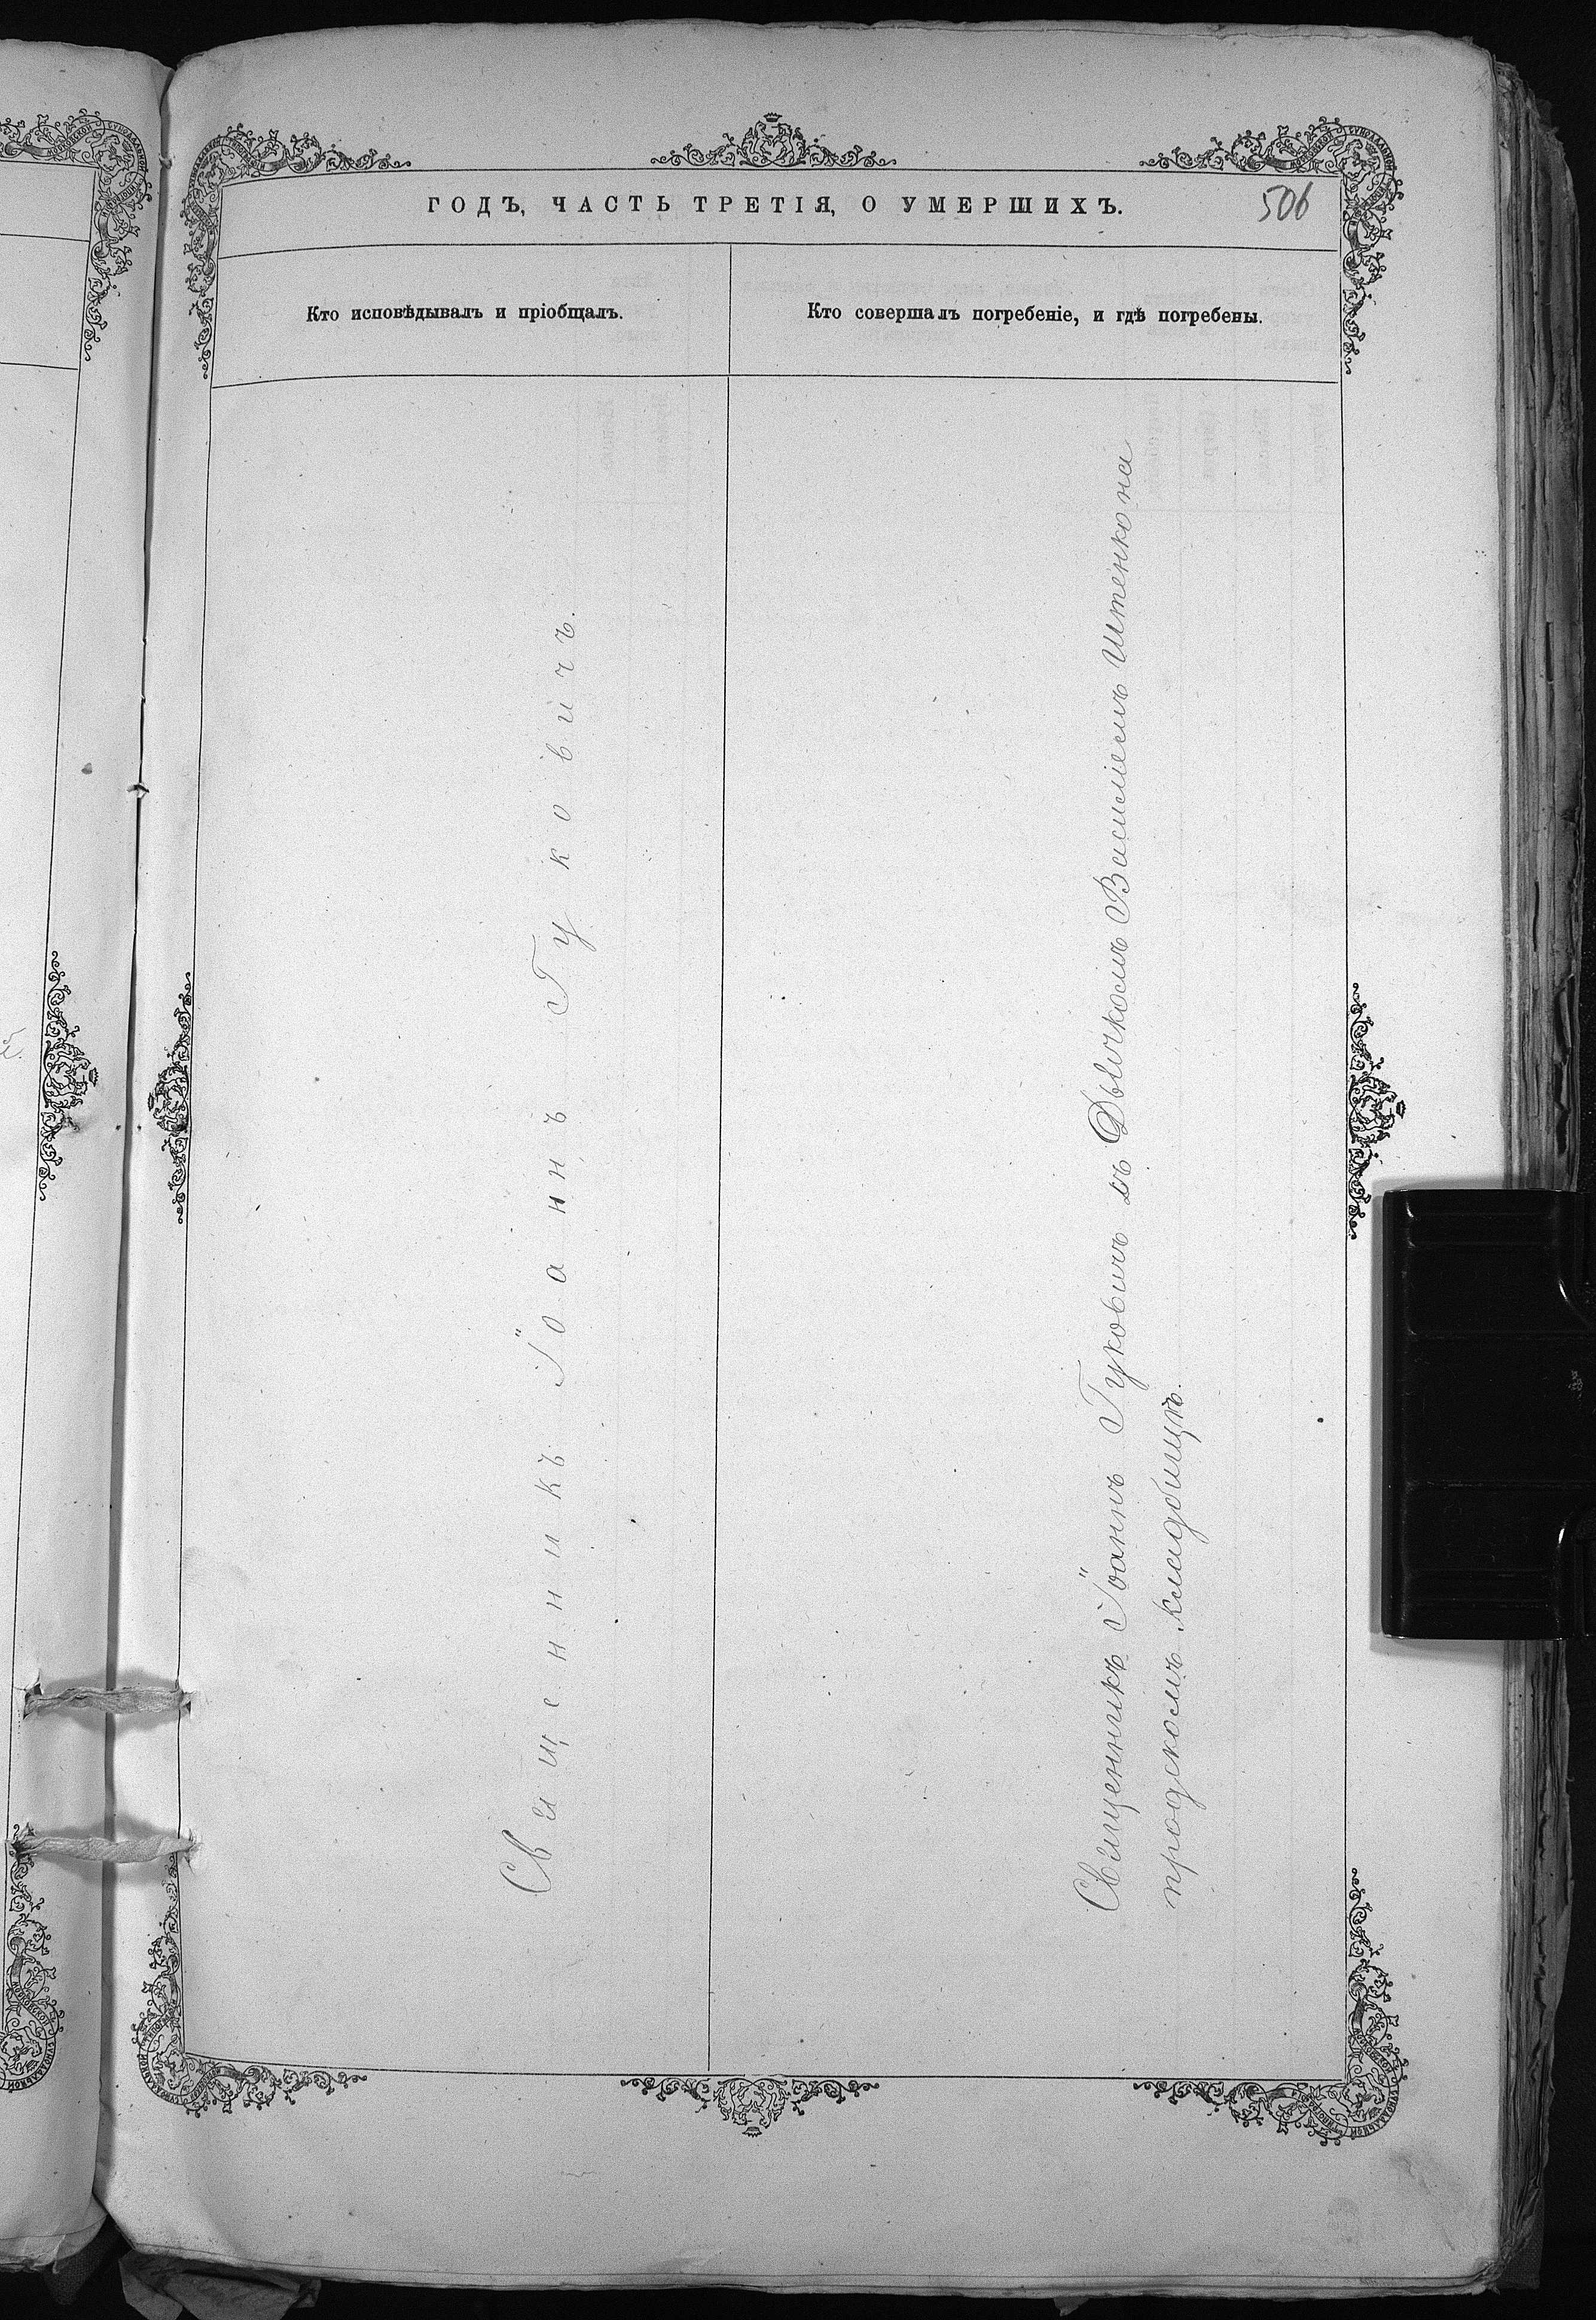 ГОДЪ, ЧАСТЬ ТРЕТІЯ, О УМЕРШИХЪ.
506
Кто исповѣдывалъ и пріобщалъ.
Кто совершалъ погребеніе, и гдѣ погребены.
Священникъ Іоаннъ Гуковичъ.
Священникъ Іоаннъ Гуковичъ съ Дьячкомъ Василіемъ Штенко на
градскомъ кладбищѣ.